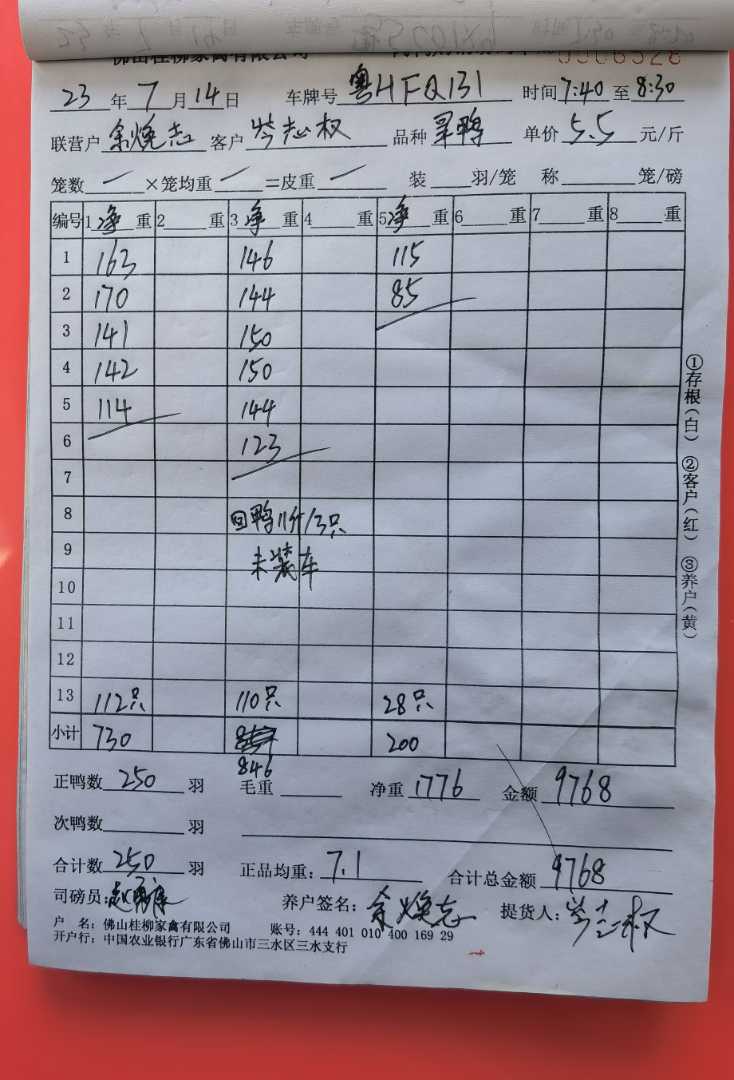 佛山桂柳家禽有限公司
23年 7月14日 车牌号 粤HFQ131 时间7:40至8:30
联营户 余焕志 客户 岑志权 品种 旱鸭 单价 5.5 元/斤
笼数 一 ×笼均重 一 =皮重 一 装 羽/笼 称 笼/磅
编号 1净重 2 重 3净重 4 重 5净重 6 重 7 重 8 重
1 163 146 115
2 170 144 85
3 141 150
4 142 150
5 114 144
6 123
7
8 回鸭11斤/3只
9 未装车
10
11
12
13 112只 110只 28只
小计 730 200
846
正鸭数 250 羽 毛重 净重 1776 金额 9768
次鸭数 羽
合计数 250 羽 正品均重: 7.1 合计总金额 9768
司磅员: 养户签名: 余焕志 提货人: 岑志权
户 名: 佛山桂柳家禽有限公司 账号: 444 401 010 400 169 29
开户行: 中国农业银行广东省佛山市三水区三水支行
①存根(白) ②客户(红) ③养户(黄)